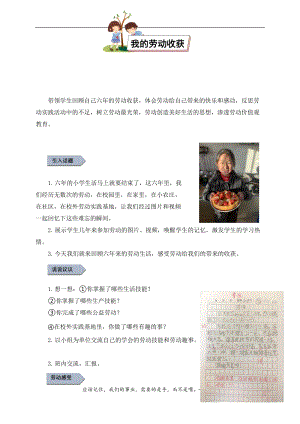 我的劳动收获
带领学生回顾自己六年的劳动收获，体会劳动给自己带来的快乐和感动，反思劳
动实践活动中的不足，树立劳动最光荣，劳动创造美好生活的思想，渗透劳动价值观
教育。
引入话题
1. 六年的小学生活马上就要结束了，这六年里，我
们经历无数次的劳动，在校园里、在家庭里、在社
区、在校外劳动实践基地，让我们经过图片和视频
一起回忆下这些难忘的瞬间。
2. 展示学生几年来参加劳动的图片、视频，唤醒学生的记忆，激发学生的学习热
情。
3. 今天我们就来回顾六年来的劳动生活，感受劳动给我们的带来的收获。
谈谈议议
1. 想一想：①你掌握了哪些生活技能？
②你掌握了哪些生产技能？
③你完成了哪些公益劳动？
④在校外实践基地里，你做了哪些有趣的事？
2. 以小组为单位交流自己的学会的劳动技能和劳动趣事。
3. 班内交流，汇报。
劳动感受
应该记住，我们的事业，需要的是手，而不是嘴。